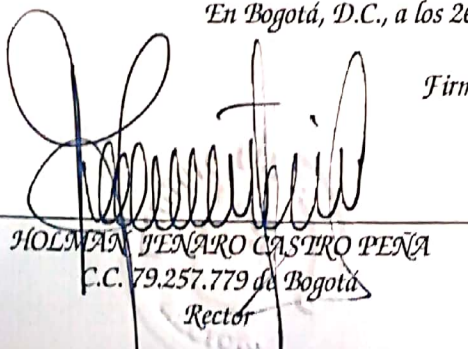 En Bogotá, D.C., a los 26
Firm
HOLMAN JENARO CASTRO PEÑA
C.C. 79.257.779 de Bogotá
Rector